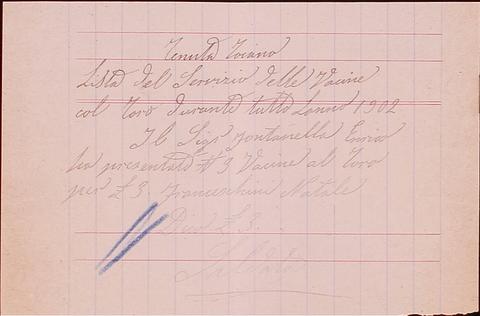 Tenuta Toiano
Lista del Servizio delle Vacine
col Toro durante tutto Lanno 1902
Il Sigr Fontanella Enrico
ha presentato N 3 Vacine al Toro
per £3 Franceschini Natale
Dico £ 3
Saldato